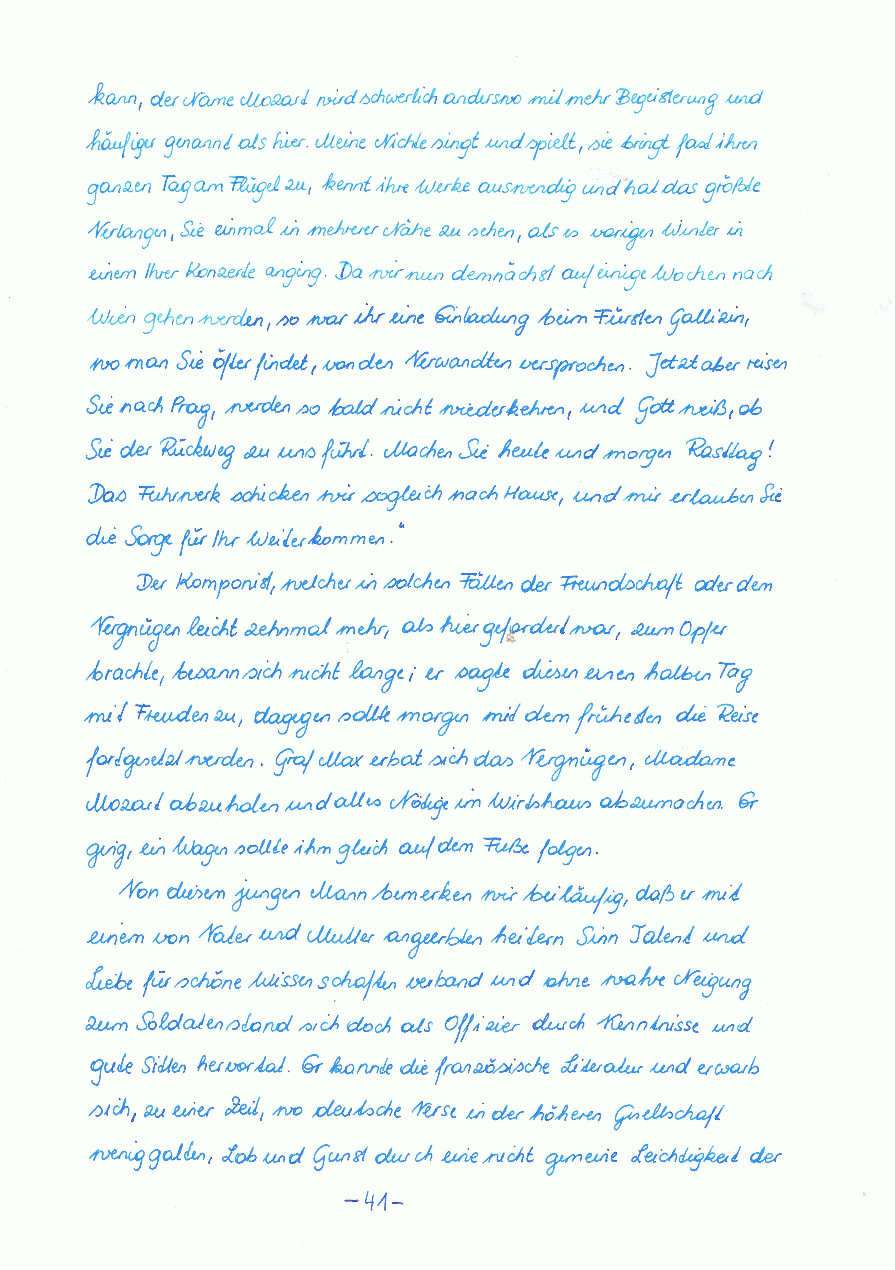 kann, der Name Mozart wird schwerlich anderswo mit mehr Begeisterung und
häufiger genannt als hier. Meine Nichte singt und spielt, sie bringt fast ihren
ganzen Tag am Flügel zu, kennt ihre Werke auswendig und hat das größte
Verlangen, Sie einmal in mehrerer Nähe zu sehen, als es vorigen Winter in
einem Ihrer Konzerte anging. Da wir nun demnächst auf einige Wochen nach
Wien gehen werden, so war ihr eine Einladung beim Fürsten Gallizin,
wo man Sie öfter findet, von den Verwandten versprochen. Jetzt aber reisen
Sie nach Prag, werden so bald nicht wiederkehren, und Gott weiß, ob
Sie der Rückweg zu uns führt. Machen Sie heute und morgen Rasttag!
Das Fuhrwerk schicken wir sogleich nach Hause, und mir erlauben Sie
die Sorge für Ihr Weiterkommen."
Der Komponist, welcher in solchen Fällen der Freundschaft oder dem
Vergnügen leicht zehnmal mehr, als hier gefordert war, zum Opfer
brachte, besann sich nicht lange; er sagte diesen einen halben Tag
mit Freuden zu, dagegen sollte morgen mit dem frühesten die Reise
fortgesetzt werden. Graf Max erbat sich das Vergnügen, Madame
Mozart abzuholen und alles Nötige im Wirtshaus abzumachen. Er
ging, ein Wagen sollte ihm gleich auf dem Fuße folgen.
Von diesem jungen Mann bemerken wir beiläufig, daß er mit
einem von Vater und Mutter angeerbten heitern Sinn Talent und
Liebe für schöne Wissenschaften verband und ohne wahre Neigung
zum Soldatenstand sich doch als Offizier durch Kenntnisse und
gute Sitten hervortat. Er kannte die französische Literatur und erwarb
sich, zu einer Zeit, wo deutsche Verse in der höheren Gesellschaft
wenig galten, Lob und Gunst durch eine nicht gemeine Leichtigkeit der
-41-